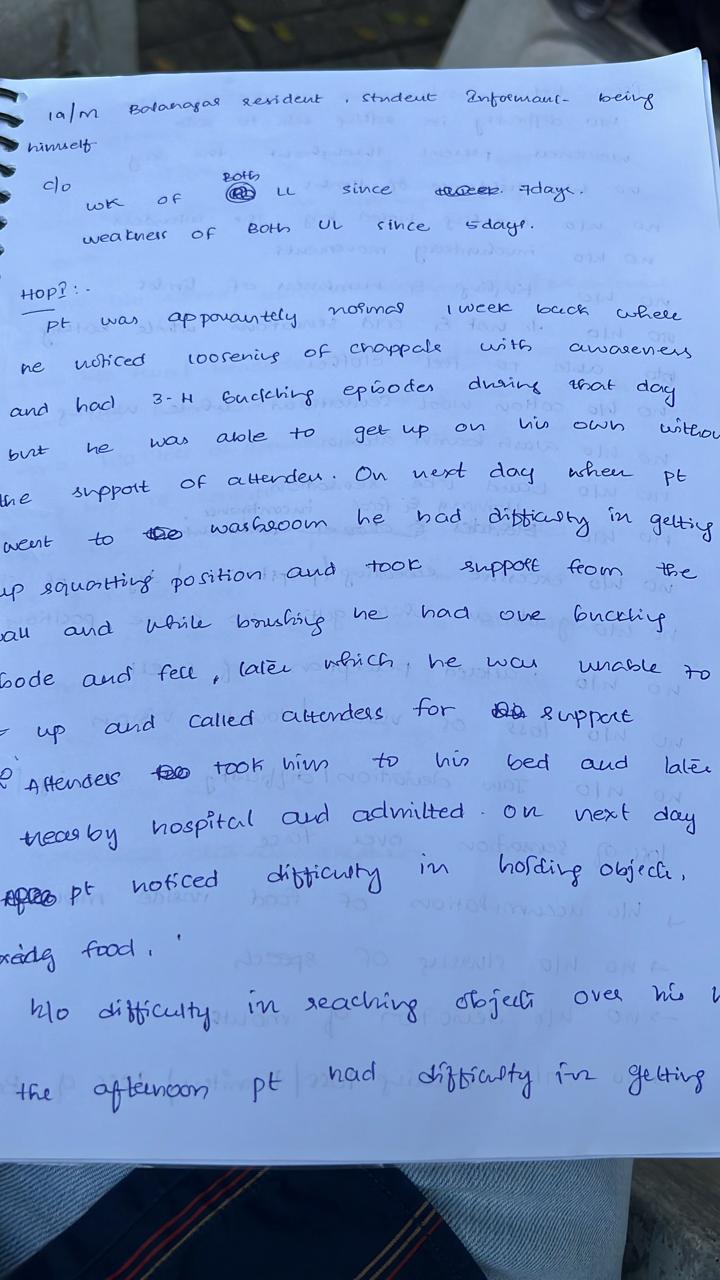 19/M Balanagar resident, student Informant- being
himself
c/o
Both
wk of LL since 7days.
weakness of Both UL since 5days.
HOPI:-
pt was apporantely normal 1 week back where
he noticed loosening of chappals with awareness
and had 3-4 buckling episodes during that day
but he was able to get up on his own withou
the support of attender. On next day when pt
went to washroom he had difficulty in getting
up squatting position and took support from the
all and while brushing he had one buckling
sode and fell, later which, he was unable to
up and called attenders for support
Attenders took him to his bed and later
nearby hospital and admitted. on next day
pt noticed difficulty in holding objects,
food.
h/o difficulty in reaching objects over his
the afternoon pt had difficulty in getting